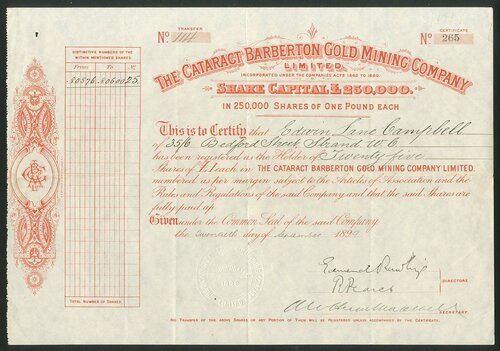 TRANSFER
No. 1114
CERTIFICATE
No. 265
THE CATARACT BARBERTON GOLD MINING COMPANY
LIMITED.
INCORPORATED UNDER THE COMPANIES ACTS 1862 TO 1880.
SHARE CAPITAL £250,000.
IN 250,000 SHARES OF ONE POUND EACH
DISTINCTIVE NUMBERS OF THE
WITHIN MENTIONED SHARES
From To No.
80576 80600 25
TOTAL NUMBER OF SHARES
This is to Certify that Edwin Lane Campbell
of 35/6 Bedford Street Strand W.C.
has been registered as the Holder of Twenty five
Shares of £1 each in THE CATARACT BARBERTON GOLD MINING COMPANY LIMITED.
numbered as per margin subject to the Articles of Association and the
Rules and Regulations of the said Company and that the said Shares are
fully paid up
Given under the Common Seal of the said Company.
the twentieth day of September 1889
R Pearce
DIRECTORS
SECRETARY.
NO TRANSFER OF THE ABOVE SHARES OR ANY PORTION OF THEM WILL BE REGISTERED UNLESS ACCOMPANIED BY THE CERTIFICATE.